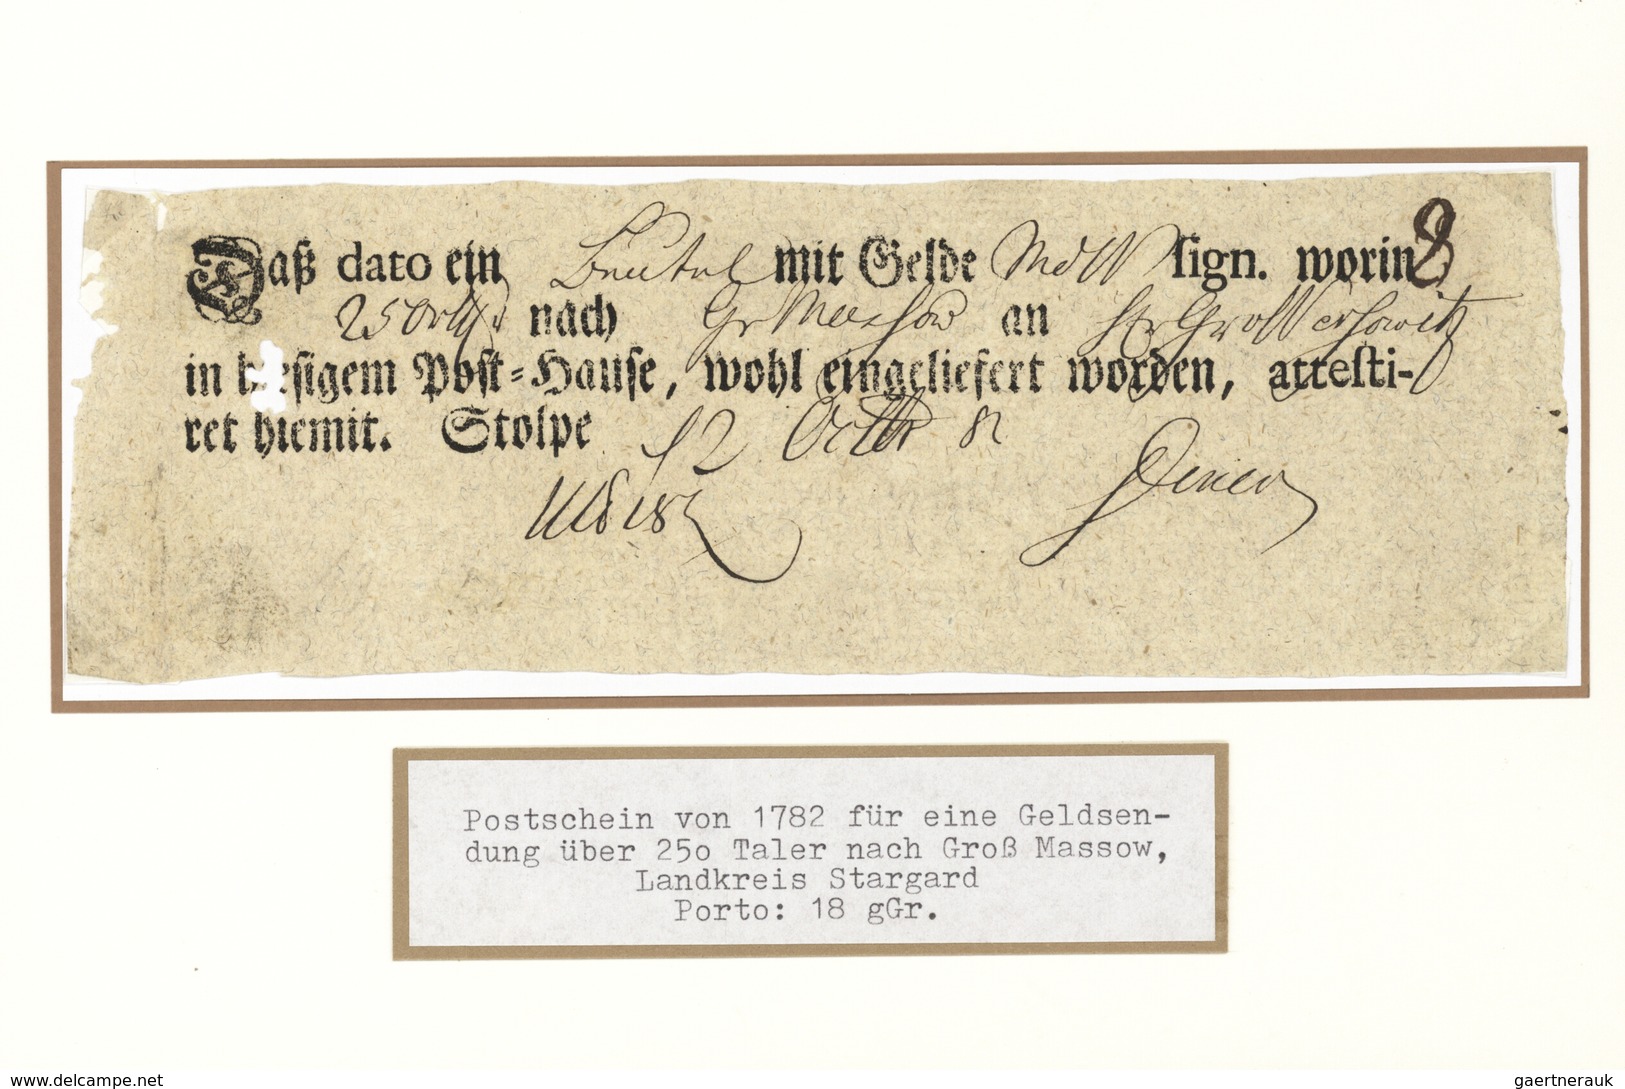 Daß dato ein Beutel mit Gelde sign. worin
250 nach Gr Massow an
in hiesigem Post-Hause, wohl eingeliefert worden, attesti-
ret hiemit. Stolpe 12 Octbr 82
Postschein von 1782 für eine Geldsen-
dung über 25o Taler nach Groß Massow,
Landkreis Stargard
Porto: 18 gGr.
www.delcampe.net
gaertnerauk